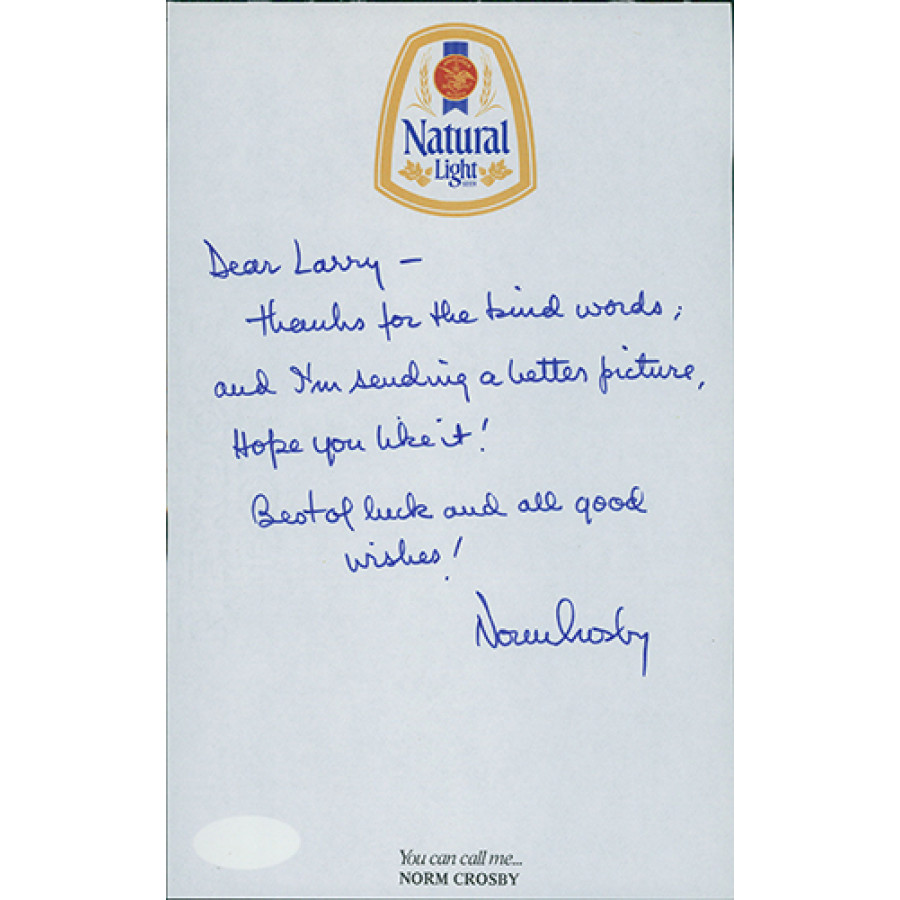 Natural
Light
Dear Larry —
thanks for the kind words;
and I'm sending a better picture,
Hope you like it!
Best of luck and all good
wishes!
Norm Crosby
You can call me...
NORM CROSBY